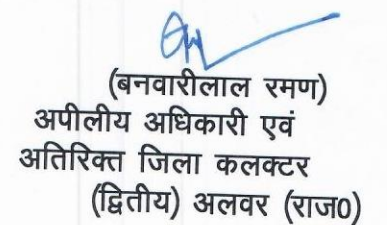 (बनवारीलाल रमण)
अपीलीय अधिकारी एवं
अतिरिक्त जिला कलक्टर
(द्वितीय) अलवर (राज0)